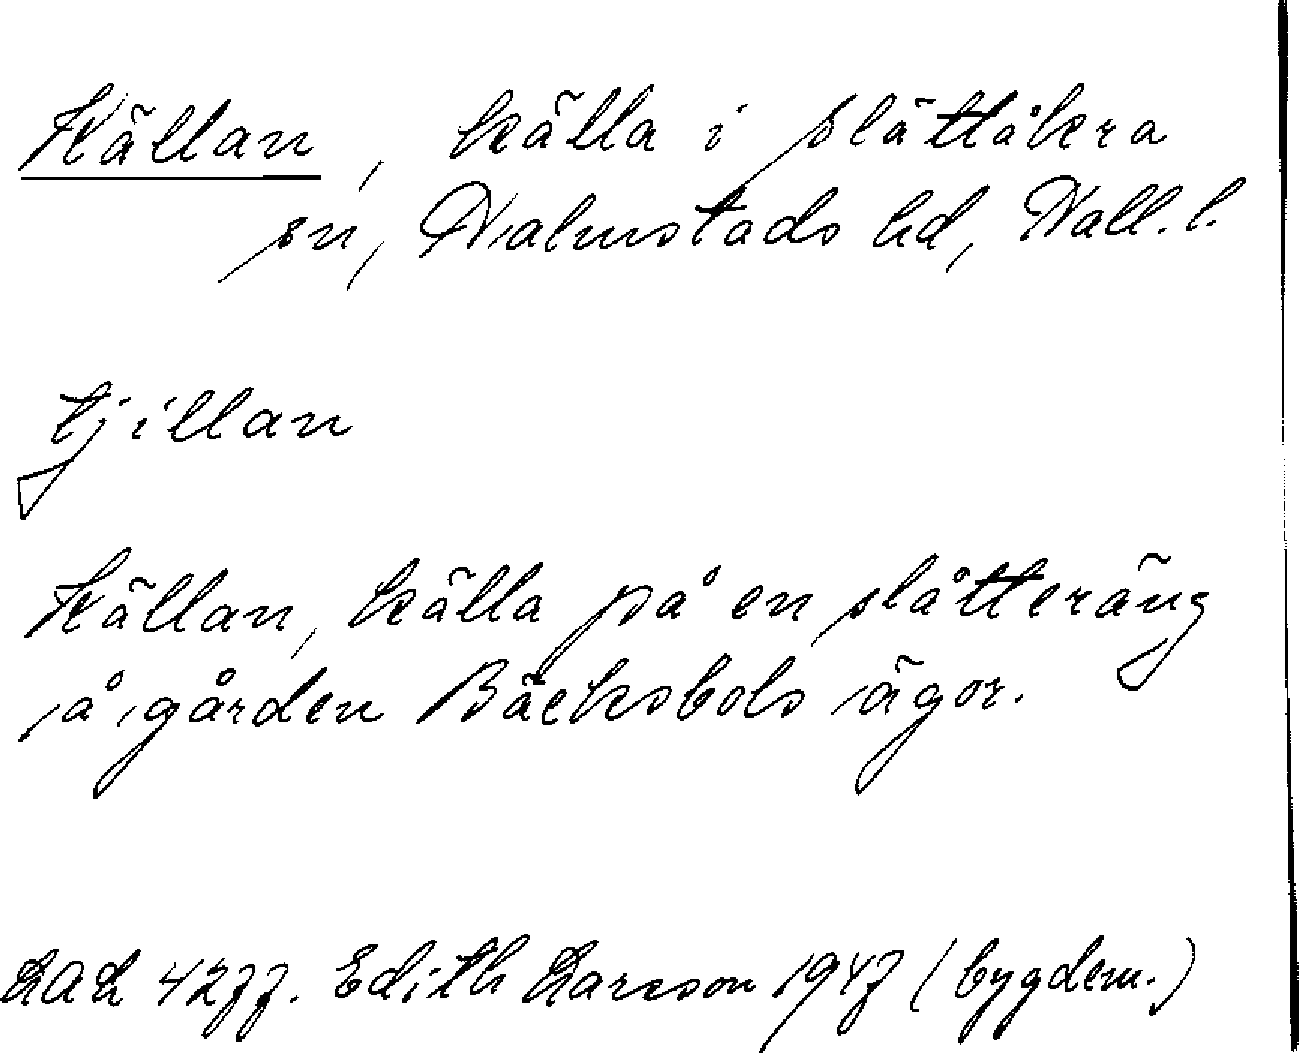 Källan, källa i Slättåkra
sn, Halmstads hd, Hall. l.
tjillan
Källan, källa på en slåtteräng
å gården Bäcksbols ägor.
LAL 4277. Edith Larsson 1947 (bygdem.)